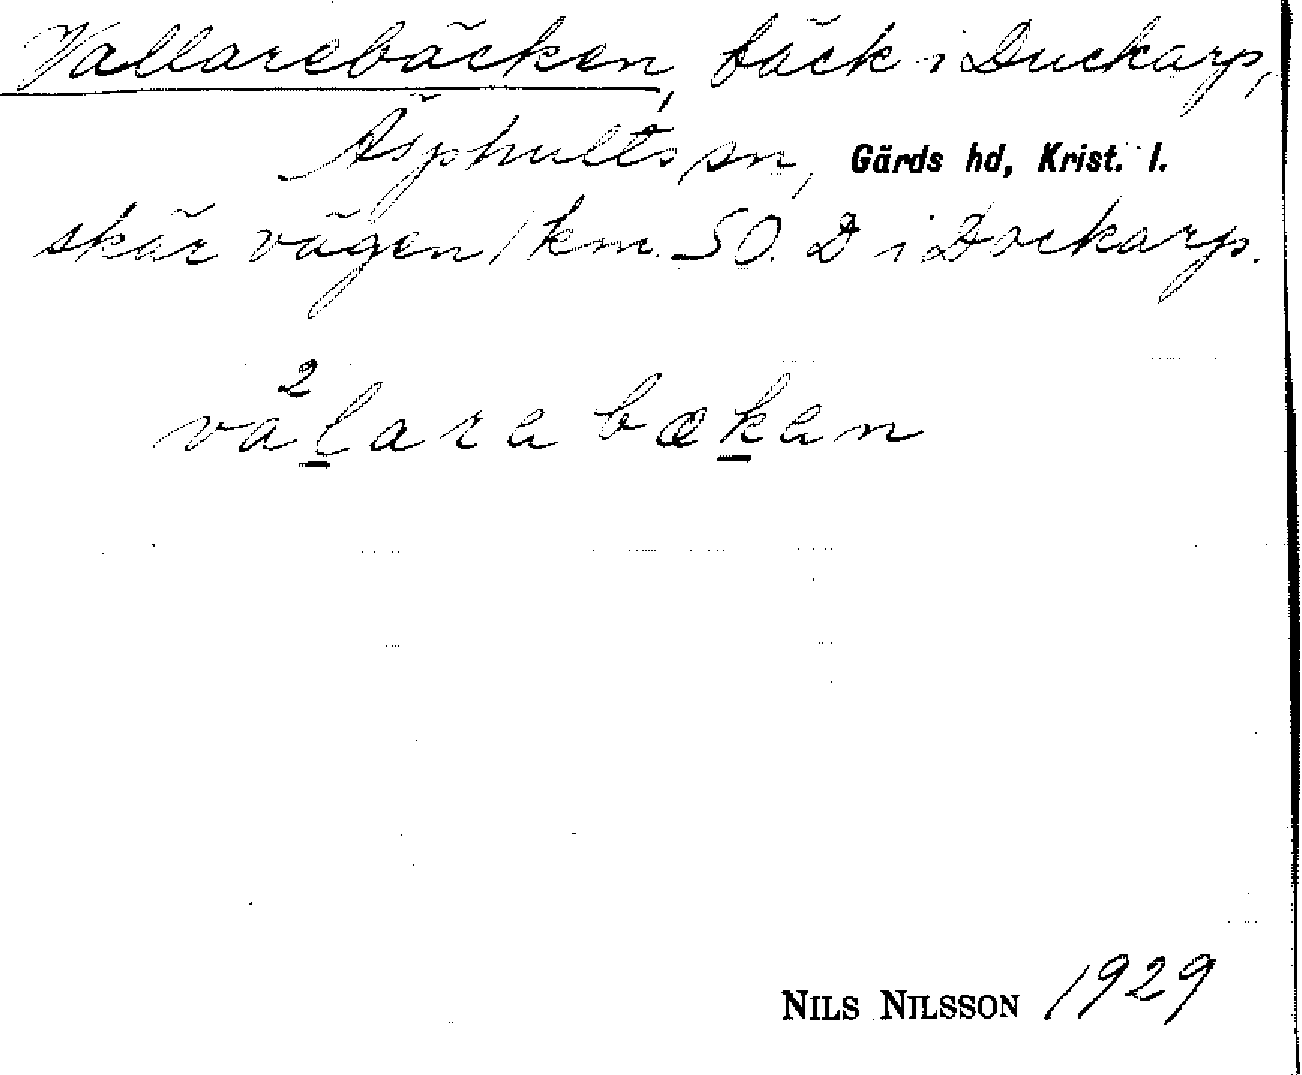 Vallarebäcken, bäck i Duckarp,
Äsphults sn, Gärds hd, Krist. l.
skär vägen 1 km. SO. D i Dockarp.
va²l̲ara bæk̲an
NILS NILSSON 1929